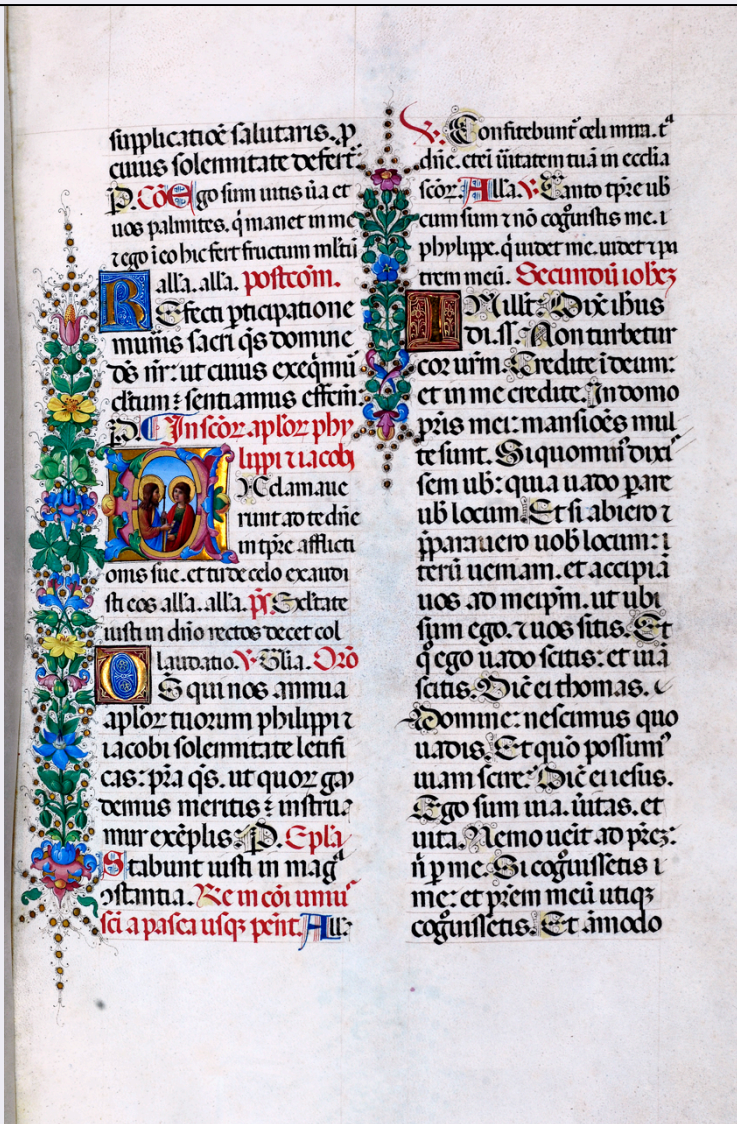 supplicatiōe salutaris. p̱
cuius solemnitate defert̄.
P. Cō Ego sum uitis ūa et
uos palmites. q̇ manet in me
⁊ ego ī eo hic fert fructum ml̄tū
alľa. alľa. postcōm.
REfecti p̱ticipatione
muneris sacri q̄s domine
dō nr̄: ut cuius exeq̇mur
cl̄tum: sentiamus effcm̄.
P. In scōꝝ apl̄oꝝ phy
lippi ⁊ iacobi
EXclamaue
runt ad te dn̄e
in tp̄re afflicti
onis sue. et tu de celo exaudi
sti eos alľa. alľa. p̄s. Exl̄tate
iusti in dn̄o rectos decet col
laudatio. V. Gl̄ia. Orō
DS qui nos annua
apl̄oꝝ tuorum philippi ⁊
iacobi solemnitate letifi
cas: p̄ta q̄s. ut quoꝝ gau
demus meritis: instrua
mur exēplis: P. Epl̄a
Stabunt iusti in mag̃ᵃ
ↄstantia. Re in cōi unius
scī a pasca usqꝫ pent̄. All̄a
V. Confitebunt̄ celi mira. tᵃ
dn̄e. etei ūitatem tuā in ecclīa
scōꝝ. Alľa. V. Tanto tp̄re uob̄
cum sum ⁊ nō cog̃uistis me. i
phylippe. q̇ uidet me. uidet ⁊ pa
trem meū. Secundū iohēꝫ
IN ill̄. t. Dix̄ ih̄us
di. ss̄. Non turbetur
cor ur̄m. Credite ī deum:
et in me credite. In domo
pr̄is mei: mansiōes mul
te sunt. Si quo minꝰ dixi
sem uob̄: quia uado p̱are
uob̄ locum. Et si abiero ⁊
p̄parauero uob̄ locum: i
terū ueniam. et accipiā
uos ad meip̄m. ut ubi
sum ego. ⁊ uos sitis. Et
q̇ ego uado scitis: et uiā
scitis. Dic̄ ei thomas.
Domine: nescimus quo
uadis. Et quō possumꝰ
uiam scire? Dic̄ ei iesus.
Ego sum uia. ūitas. et
uita. Nemo ueīt ad pr̄eꝫ:
n̄ p̱ me. Si cog̃uissetis
me: et pr̄em meū utiqꝫ
cog̃uissetis. Et āmodo